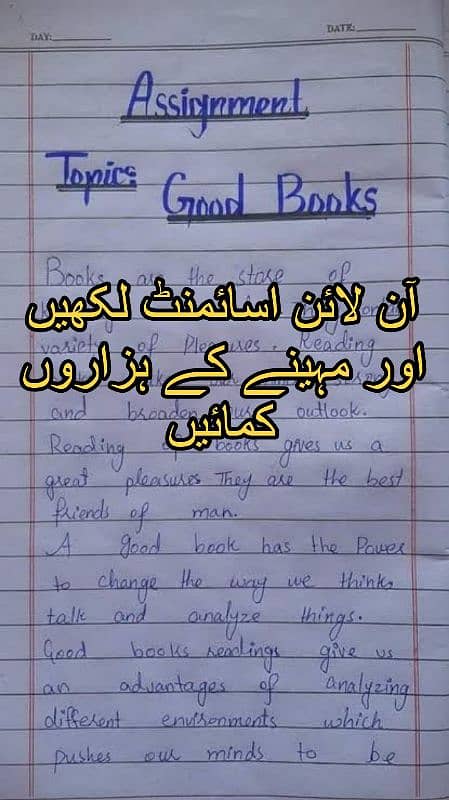 DAY:
DATE:
Assignment
Topic:
Good Books
Books are the store of
variety of Pleasures. Reading
and broaden our outlook.
Reading of books gives us a
great pleasures They are the best
friends of man.
A good book has the Power
to change the way we think,
talk and analyze things.
Good books readings give us
an advantages of analyzing
different environments which
pushes our minds to be
آن لائن اسائمنٹ لکھیں
اور مہینے کے ہزاروں
کمائیں